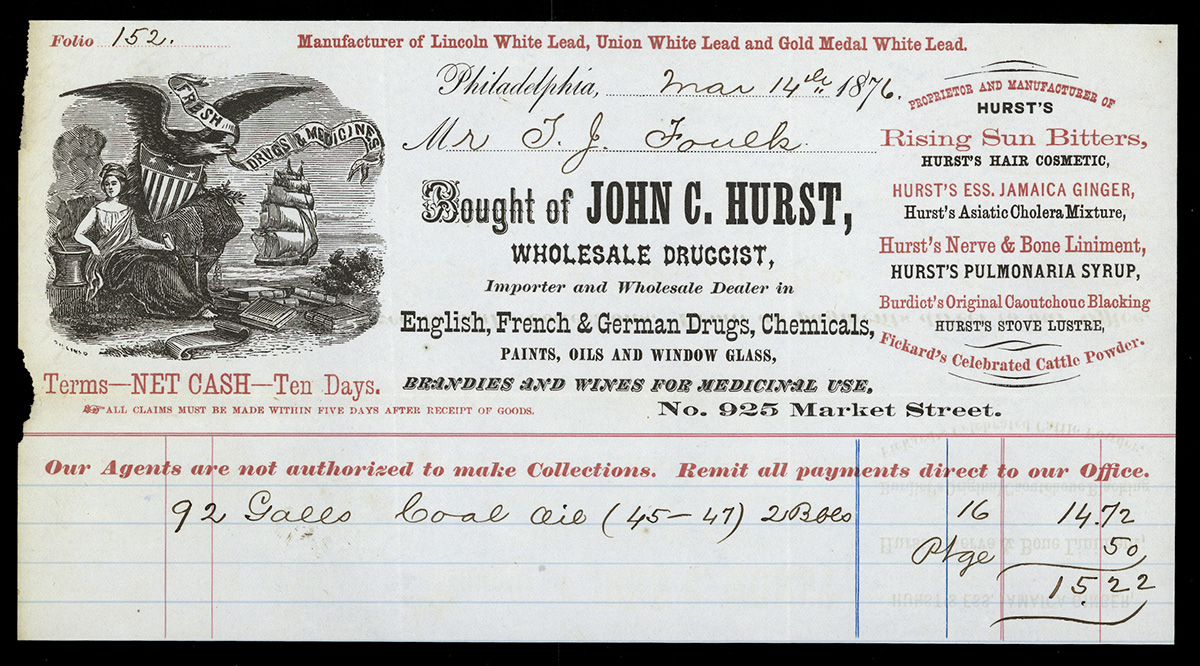 Folio 152.
Manufacturer of Lincoln White Lead, Union White Lead and Gold Medal White Lead.
FRESH
DRUGS & MEDICINES
Philadelphia, Mar 14th 1876.
Mr T. J. Foulk
Bought of JOHN C. HURST,
WHOLESALE DRUGGIST,
Importer and Wholesale Dealer in
English, French & German Drugs, Chemicals,
PAINTS, OILS AND WINDOW GLASS,
BRANDIES AND WINES FOR MEDICINAL USE,
No. 925 Market Street.
PROPRIETOR AND MANUFACTURER OF
HURST'S
Rising Sun Bitters,
HURST'S HAIR COSMETIC,
HURST'S ESS. JAMAICA GINGER,
Hurst's Asiatic Cholera Mixture,
Hurst's Nerve & Bone Liniment,
HURST'S PULMONARIA SYRUP,
Burdict's Original Caoutchouc Blacking
HURST'S STOVE LUSTRE,
Fickard's Celebrated Cattle Powder.
Terms—NET CASH—Ten Days.
ALL CLAIMS MUST BE MADE WITHIN FIVE DAYS AFTER RECEIPT OF GOODS.
Our Agents are not authorized to make Collections. Remit all payments direct to our Office.
92 Galls Coal Oil (45-47) 2 Bbls 16 14.72
Ptge 50
15.22